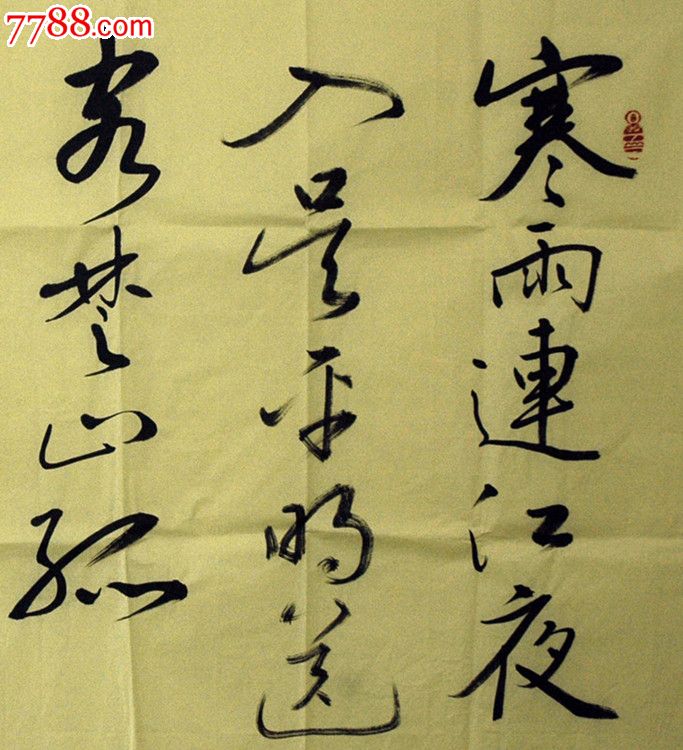 7788.com
寒雨連江夜
入吴平明送
客楚山孤